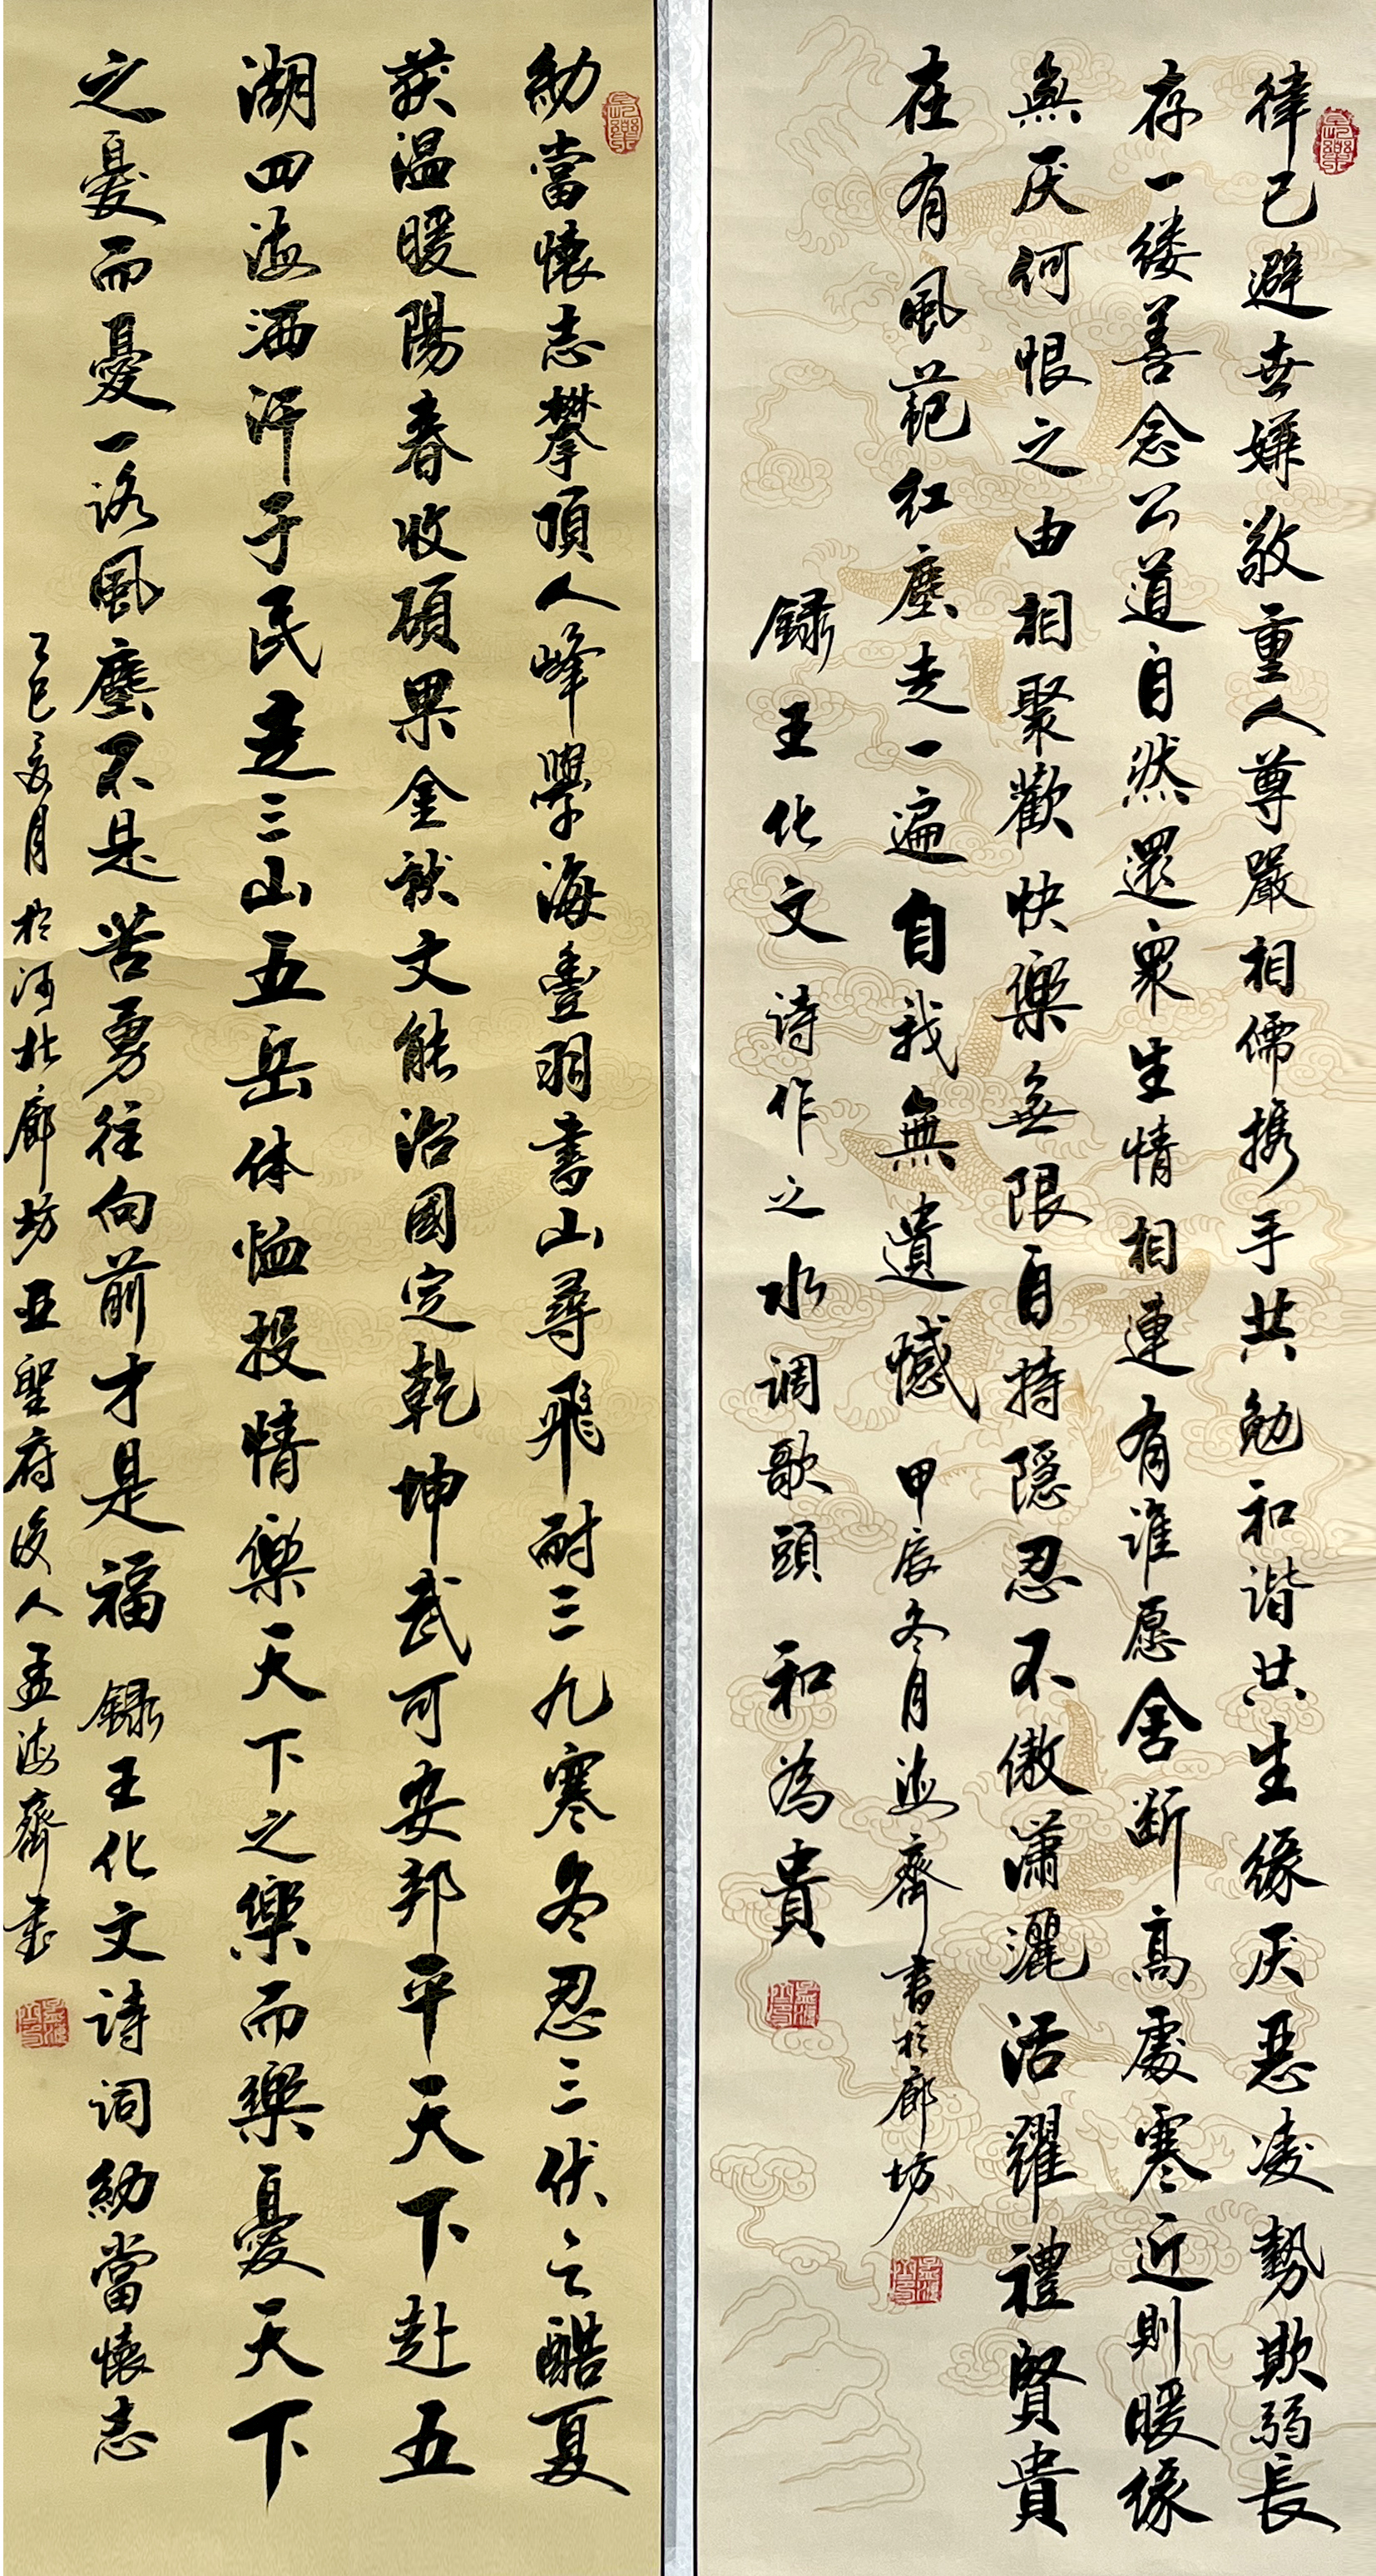 律己避世嫌敬重人尊嚴相儒携手共勉和谐共生缘厌恶凌勢欺弱長
存一缕善念公道自然還衆生情相連有谁愿舍断高處寒近則暖缘
無厌何恨之由相聚歡快樂無限自持隱忍不傲潇灑活耀禮賢貴
在有風範红塵走一遍自我無遺憾 甲辰冬月海齊書於廊坊
録王化文诗作之水调歌頭 和為貴
幼當懷志攀頂人峰學海豐羽書山尋飛耐三九寒冬忍三伏之酷夏
获温暖陽春收碩果金秋文能治國定乾坤武可安邦平天下赴五
湖四海洒汗于民走三山五岳体恤投情樂天下之樂而樂憂天下
之憂而憂一路風塵不是苦勇往向前才是福 録王化文诗词幼當懷志
乙巳夏月於河北廊坊亚聖府後人孟海齊書